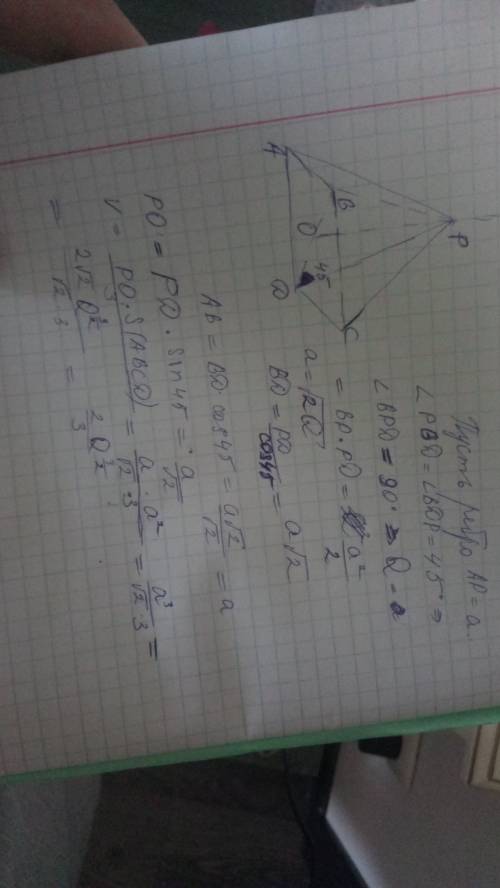 Пусть ребро AP = a.
∠PBD = ∠BDP = 45° ⇒
∠BPD = 90° ⇒ Q =
= BP·PD = a²
2
a = √2Q
BD = PD/cos45 = a√2
AB = BD·cos45 = a√2/√2 = a
PO = PD·sin45 = a/√2
V = PO·S(ABCD)/3 = a·a²/√2·3 = a³/√2·3 =
= 2√2 Q^(3/2)/√2·3 = 2/3 Q^(3/2)
P
A
B
O
45
D
C